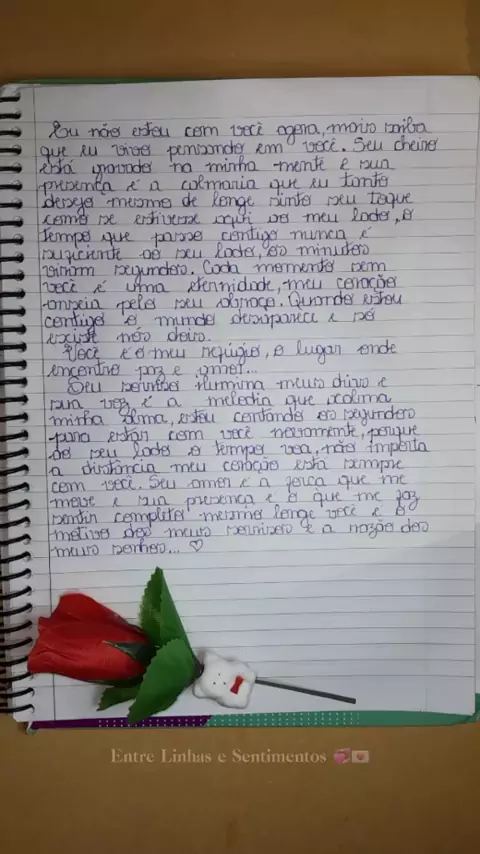 Eu não estou com você agora, mais saiba
que eu vivo pensando em você. Seu cheiro
está gravado na minha mente e sua
presença é a calmaria que eu tanto
desejo mesmo de longe sinto seu toque
como se estivesse aqui ao meu lado, o
tempo que passo contigo nunca é
suficiente ao seu lado, os minutos
viram segundos. Cada momento sem
você é uma eternidade, meu coração
anseia pelo seu abraço. Quando estou
contigo o mundo desaparece e só
existe nós dois.
Você é o meu refúgio, o lugar onde
encontro paz e amor...
Seu sorriso ilumina meus dias e
sua voz é a melodia que acalma
minha alma, estou contando os segundos
para estar com você novamente, porque
ao seu lado o tempo voa, não importa
a distância meu coração está sempre
com você. Seu amor é a força que me
move e sua presença é o que me faz
sentir completo mesmo longe você é o
motivo dos meus sorrisos e a razão dos
meus sonhos... ♡
Entre Linhas e Sentimentos 💞💌